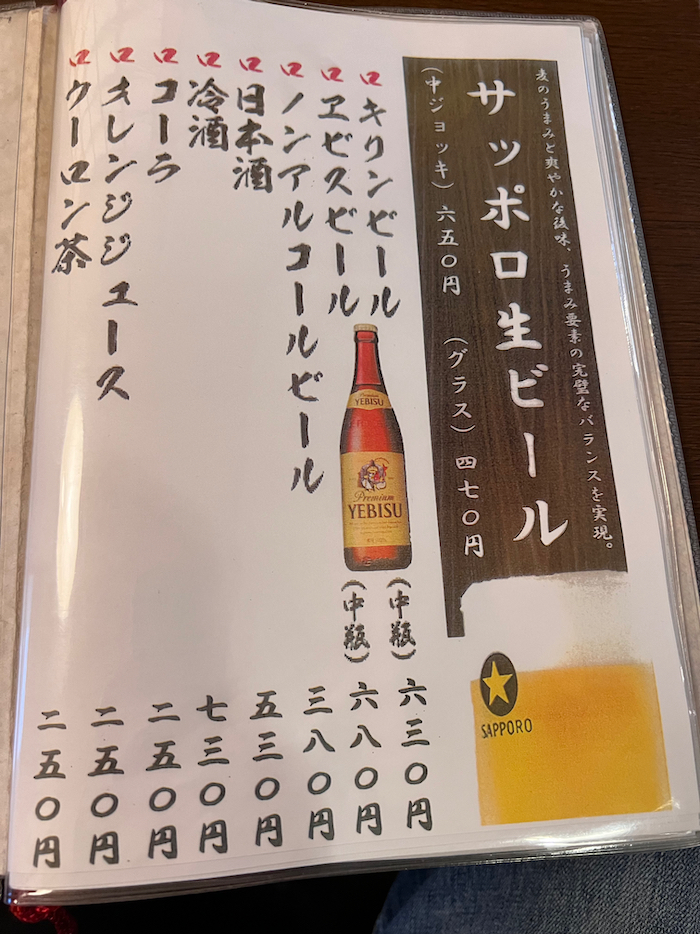 麦のうまみと爽やかな後味、うまみ要素の完璧なバランスを実現。
サッポロ生ビール
(中ジョッキ) 六五〇円 (グラス) 四七〇円
SAPPORO
口 キリンビール (中瓶) 六三〇円
口 ヱビスビール (中瓶) 六八〇円
Premium
YEBISU
Premium
YEBISU
口 ノンアルコールビール 三八〇円
口 日本酒 五三〇円
口 冷酒 七三〇円
口 コーラ 二五〇円
口 オレンジジュース 二五〇円
口 ウーロン茶 二五〇円